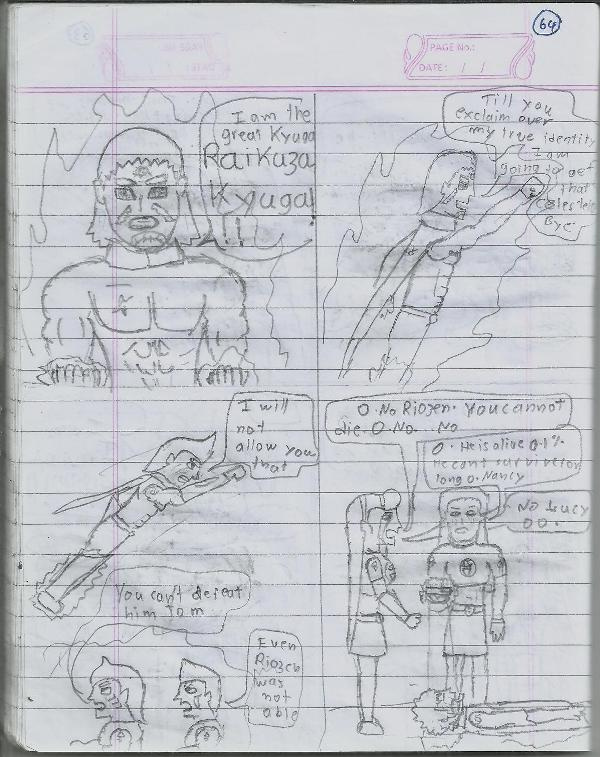 64
PAGE No.:
DATE: / /
I am the
great Kyuga
Raikuza
Kyuga!
!!
Till you
exclaim over
my true identity
I am
going to get
that
Bye.
I will
not
allow you
that
You can't defeat
him Tom
Even
Riozen
was
not
able
O. No Riozen. You cannot
die. O. No. No
O. He is alive 0.1%
He cant survive for
long O. Nancy
No Lucy
O O.